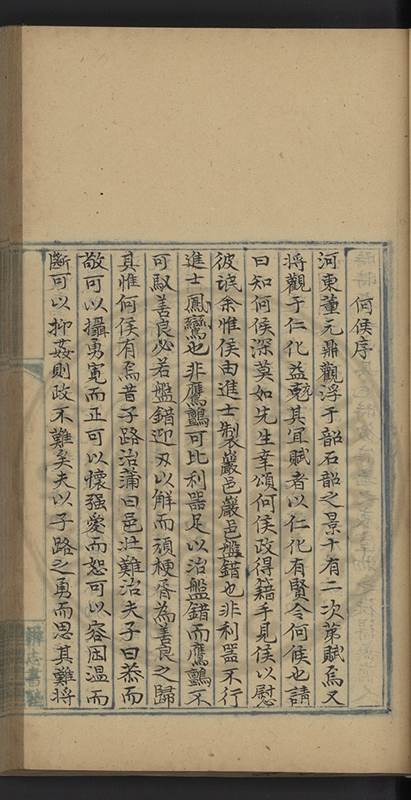 何侯序
河東董元鼎觀浮于韶石韶之景十有二次第賦焉又
將觀于仁化益覈其宜賦者以仁化有賢令何候也請
曰知何侯深莫如先生幸頌何侯政得籍手見侯以慰
彼詆余惟侯由進士製巖邑巖邑盤錯也非利器不行
進士鳳鸞也非鷹鸇可比利器足以治盤錯而鷹鸇不
可馭善良必若盤錯迎刃以解而頑梗胥為善良之歸
其惟何侯有焉昔子路治蒲曰邑壯難治夫子曰恭而
敬可以攝勇寬而正可以懷强愛而恕可以容困溫而
斷可以抑姦則政不難矣夫以子路之勇而思其難將